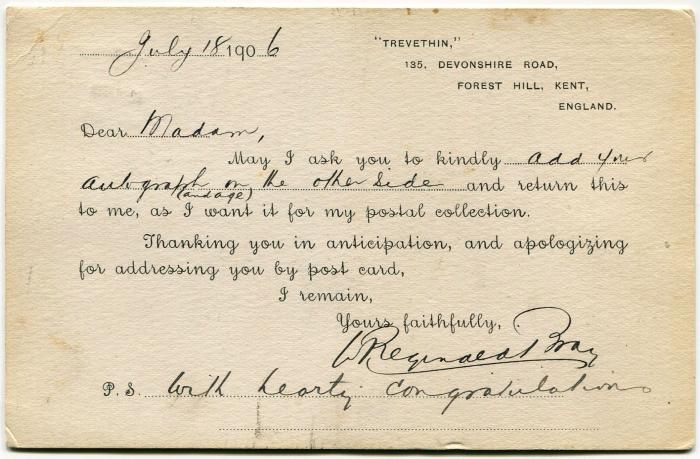 July 18 1906
"TREVETHIN,"
135, DEVONSHIRE ROAD,
FOREST HILL, KENT,
ENGLAND.
Dear Madam,
May I ask you to kindly add your
autograph on the other side and return this
(and age)
to me, as I want it for my postal collection.
Thanking you in anticipation, and apologizing
for addressing you by post card,
I remain,
Yours faithfully,
W Reginald Bray
P.S. With hearty congratulations